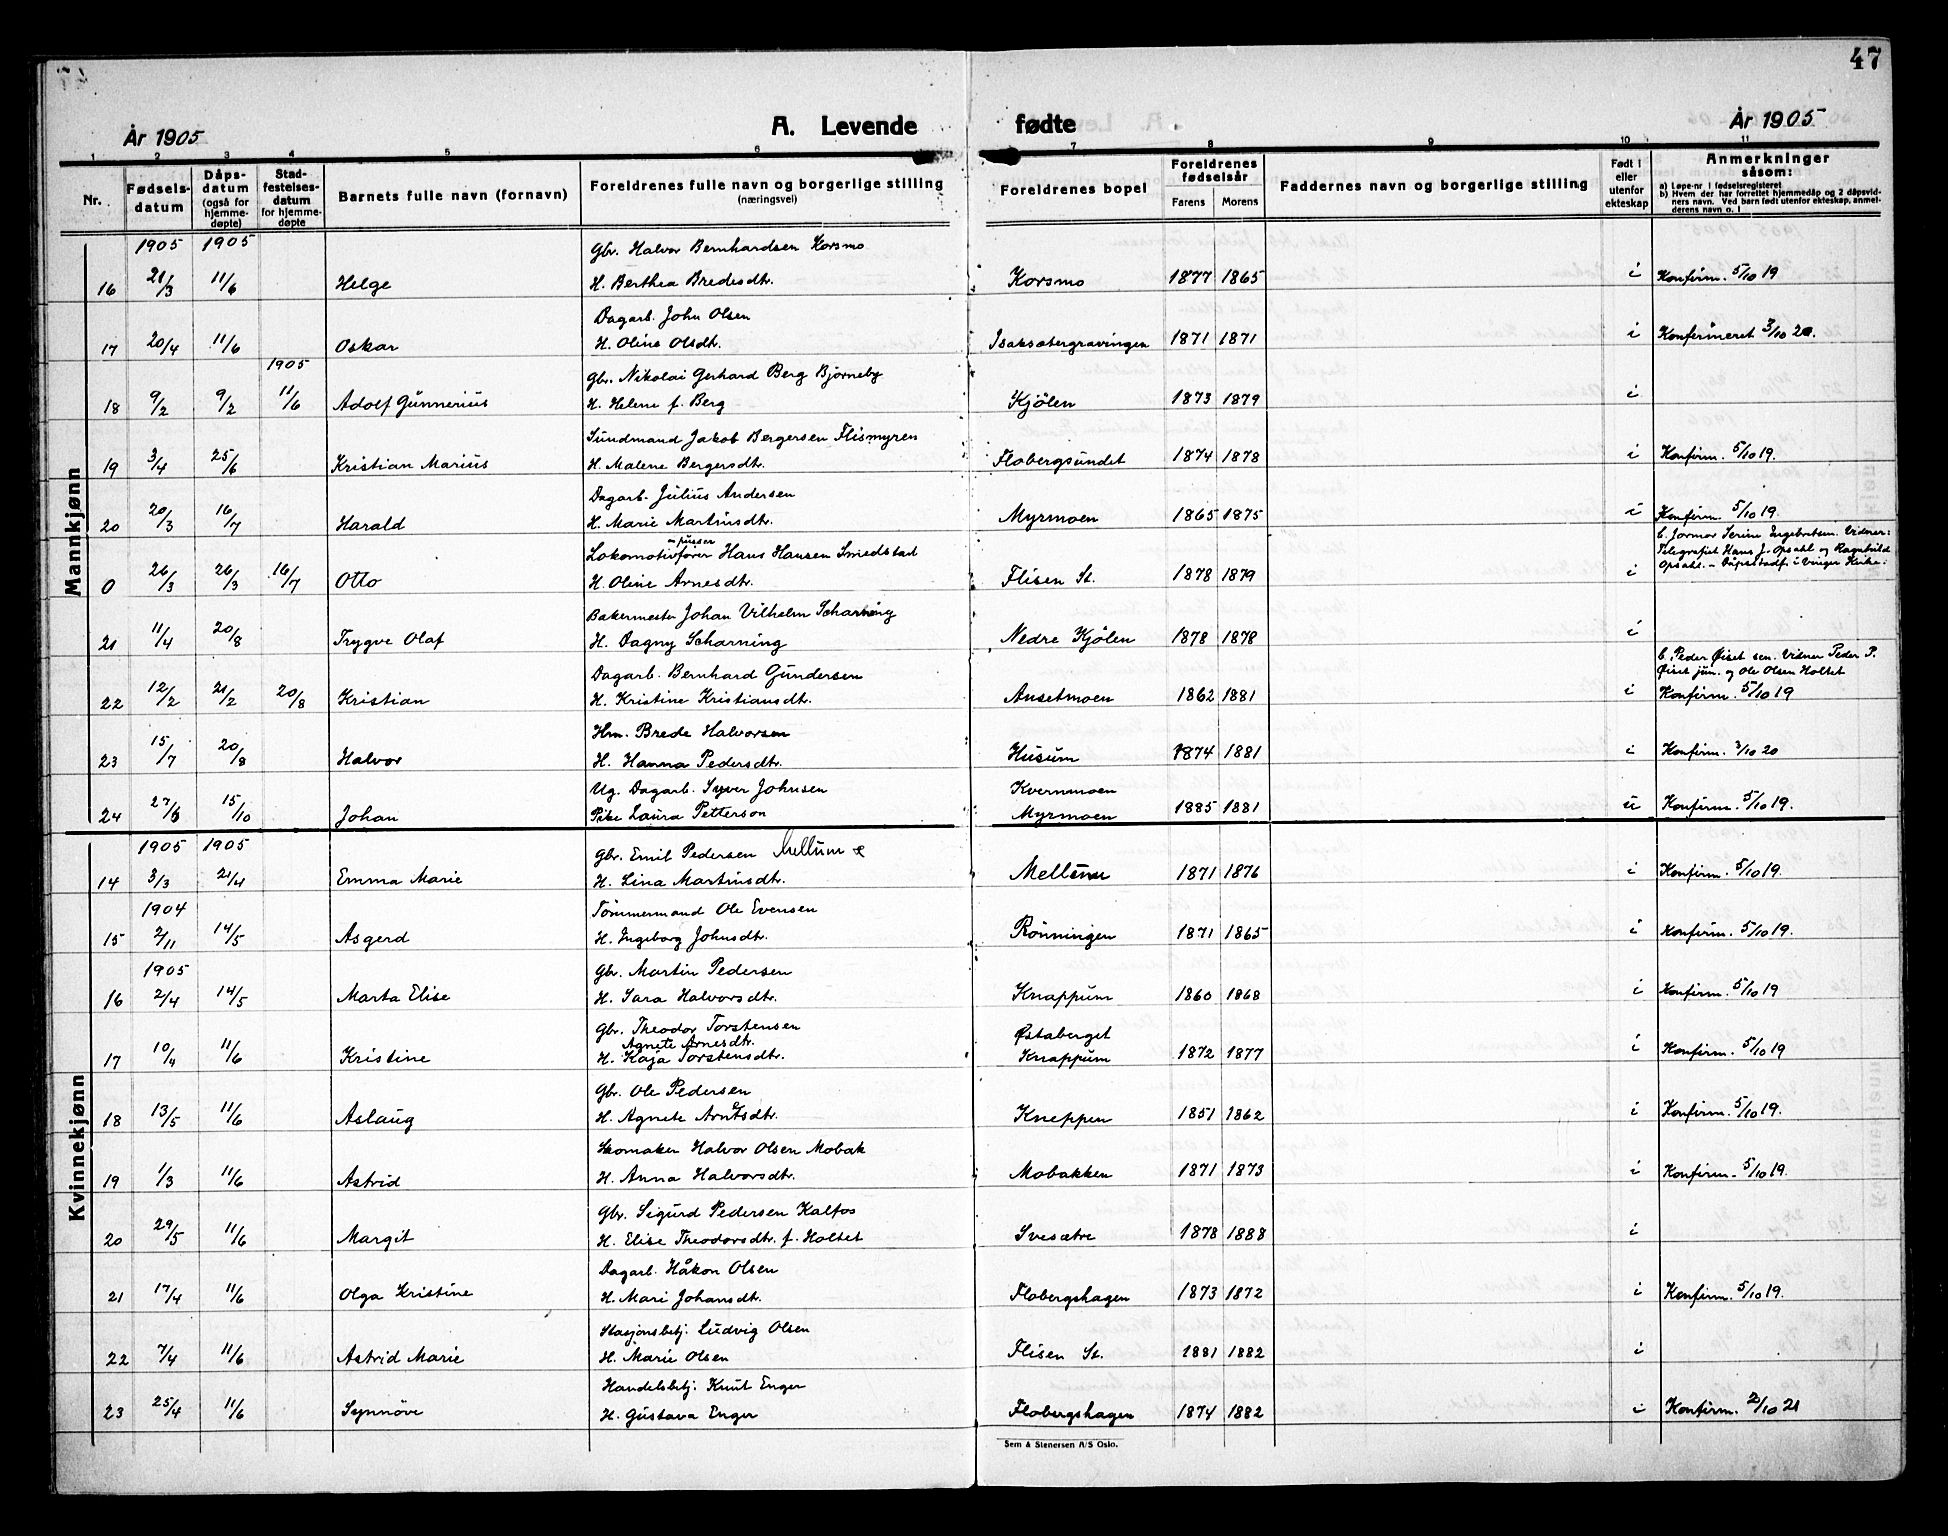 47
År 1905
A. Levende fødte
År 1905
1 2 3 4 5 6 7 8 9 10 11
Nr.
Fødsels-datum
Dåps-datum (også for hjemme-døpte)
Stad-festelses-datum for hjemme-døpte
Barnets fulle navn (fornavn)
Foreldrenes fulle navn og borgerlige stilling (næringsvei)
Foreldrenes bopel
Foreldrenes fødselsår
Farens Morens
Faddernes navn og borgerlige stilling
Født i eller utenfor ekteskap
Anmerkninger såsom:
a) Løpe-nr i fødselsregisteret
b) Hvem der har forrettet hjemmedåp og 2 dåpsvid-
ners navn. Ved barn født utenfor ekteskap, anmel-
derens navn o. l
Mannkjønn
1905 1905 Gbr. Halvor Bernhardsen Korsmo
16 21/3 11/6 Helge H. Berthea Bredesdtr. Korsmo 1877 1865 i Konfirm. 5/10 19
Dagarb. John Olsen
17 20/4 11/6 Oskar H. Oline Olsdtr. Isaksætergravingen 1871 1871 i Konfirmeret 3/10 20.
1905 Gbr. Nikolai Gerhard Berg Bjørneby
18 9/2 9/2 11/6 Adolf Gunnerius H. Helene f. Berg Kjølen 1873 1879 i
Sundmand Jakob Bergersen Flismyren
19 3/4 25/6 Kristian Marius H. Malene Bergersdtr. Flobergsundet 1874 1878 i Konfirm. 5/10 19.
Dagarb. Julius Andersen
20 20/3 16/7 Harald H. Marie Martinsdtr. Myrmoen 1865 1875 i Konfirm. 5/10 19.
pusser
Lokomotivfører Hans Hansen Smedstad b. Jormor Serine Ingebretsen. Vidner:
Telegrafist Hans J. Opsahl og Ragnhild
0 26/3 26/3 16/7 Otto H. Oline Arnesdtr. Flisen St. 1878 1879 i Opsahl. - Dåpsstadf. i Vinger Kirke.
Bakermester Johan Vilhelm Scharning
21 11/4 20/8 Trygve Olaf H. Dagny Scharning Nedre Kjølen 1878 1878 i
Dagarb. Bernhard Gundersen b. Peder Øiset sen. Vidner Peder P.
Øiset jun. og Ole Olsen Holtet
22 12/2 21/2 20/8 Kristian H. Kristine Kristiansdtr. Ansetmoen 1862 1881 i Konfirm. 5/10 19
Hm. Brede Halvorsen
23 15/7 20/8 Halvor H. Hanna Pedersdtr. Husum 1874 1881 i Konfirm. 3/10 20
Ug. Dagarb. Syver Johnsen Kvernmoen
24 27/6 15/10 Johan Pike Laura Petterson Myrmoen 1885 1881 u Konfirm. 5/10 19.
Kvinnekjønn
1905 1905 Gbr. Emil Pedersen Mellum
14 3/3 21/4 Emma Marie H. Lina Martinsdtr. Mellum 1871 1876 i Konfirm. 5/10 19.
1904 Tømmermand Ole Evensen
15 2/11 14/5 Asgerd H. Ingeborg Johnsdtr. Rønningen 1871 1865 i Konfirm. 5/10 19.
1905 Gbr. Martin Pedersen
16 2/4 14/5 Marta Elise H. Sara Halvorsdtr. Knappum 1860 1868 i Konfirm. 5/10 19
Gbr. Theodor Torstensen Østaberget
Agnete Arnesdtr.
17 10/4 11/6 Kristine H. Kaja Torstensdtr. Knappum 1872 1877 i Konfirm. 5/10 19
Gbr. Ole Pedersen
18 13/5 11/6 Aslaug H. Agnete Arntsdtr. Kneppen 1851 1862 i Konfirm. 5/10 19.
Skomaker Halvor Olsen Mobak
19 1/3 11/6 Astrid H. Anna Halvorsdtr. Mobakken 1871 1873 i Konfirm. 5/10 19.
Gbr. Sigurd Pedersen Kalfos
20 29/5 11/6 Margit H. Elise Theodorsdtr. f. Holtet Svesætre 1878 1888 i
Dagarb. Håkon Olsen
21 17/4 11/6 Olga Kristine H. Mari Johansdtr. Flobergshagen 1873 1872 i Konfirm. 5/10 19.
Stasjonsbetj. Ludvig Olsen
22 7/4 11/6 Astrid Marie H. Marie Olsen Flisen St. 1881 1882 i
Handelsbetj. Knut Enger
23 25/4 11/6 Synnøve H. Gustava Enger Flobergshagen 1874 1882 i Konfirm. 2/10 21
Sem & Stenersen A/S Oslo.